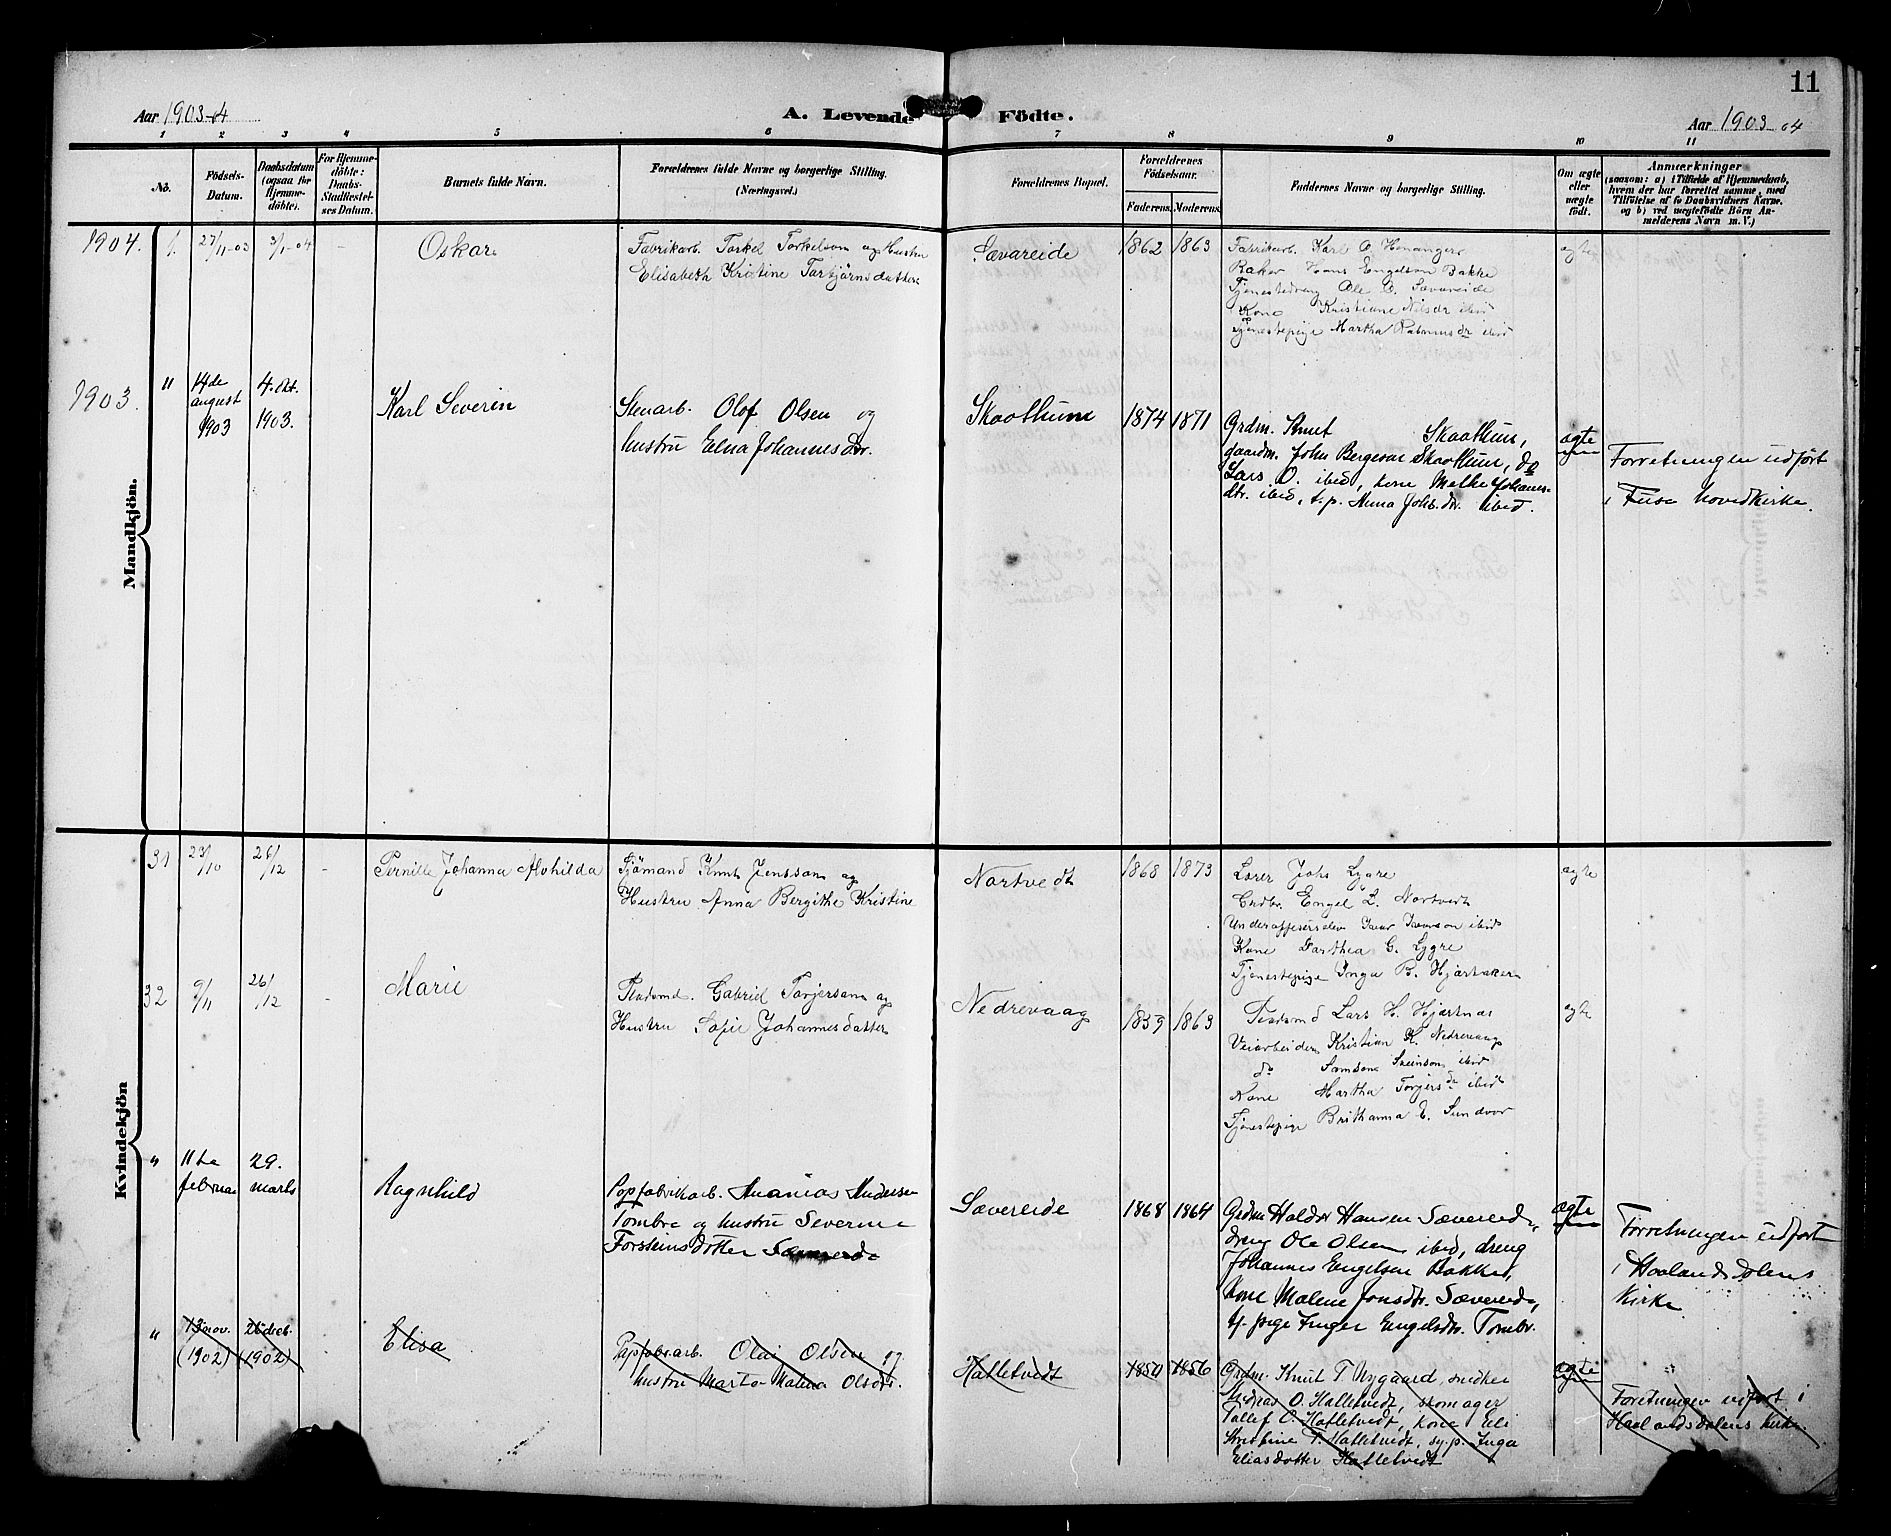 11
Aar 1903-04
A. Levende Födte.
Aar 1903-04
1 2 3 4 5 6 7 8 9 10 11
No.
Födsels-Datum.
Daabsdatum (ogsaa for Hjemme-döbte).
For Hjemme-döbte: Daabs-Stadfæstel-ses Datum.
Barnets fulde Navn.
Forældrenes fulde Navne og borgerlige Stilling.
(Næringsvei.)
Forældrenes Bopæl.
Forældrenes Födselsaar.
Faderens. Moderens.
Faddernes Navne og borgerlige Stilling.
Om ægte eller uægte födt.
Anmærkninger
(saasom: a) i Tilfælde af Hjemmedaab,
hvem der har forrettet samme, med
Tilföielse af to Daabsvidners Navne.
og b) ved uægtefödte Börn An-
melderens Navn m. V.)
Mandkjön.
1904. 1. 27/11-03 3/1-04 - Oskar
Fabrikarb. Torkel Torkelson og Hustru
Elisabeth Kristine Torbjörnsdatter
Sævareide 1862 1863
Fabrikarb. Karl O. Henanger
Baker Hans Engelsen Bakke
Tjenestedreng Ole O. Sævareide
Kone Kristiane Nilsdr ibid
Tjenestepige Martha Rasmusdr ibid
ægte
1903. " 14de august 1903 4. Okt. 1903. Karl Severin
Stenarb. Olof Olsen og
hustru Elna Johannesdr.
Skaathun 1874 1871
Grdm. Knut Skaathun,
gaardm. John Bergesen Skaathun, do
Lars O. ibid, kone Malke Johannes-
dtr. ibid, t.p. Anna Johs.dr. ibid.
ægte
Forretningen udført
i Fuse hovedkirke.
Kvindekjön
31 23/10 26/12 - Pernille Johanna Alvhilda
Sjömand Knut Jensson og
Hustru Anna Bergithe Kristine
Nortvedt 1868 1873
Lærer Johs Lygre
Grdbr. Engel L. Nortvedt
Underofficerselev Ivar Iversen ibid
Kone Darthea G. Lygre
Tjenestepige Inga B. Hjartaker
ægte
32 9/11 26/12 - Marie
Pladsmd. Gabriel Torjersen og
Hustru Sofie Johannesdatter
Nedrevaag 1859 1863
Pladsmd Lars H. Hjartnæs
Veiarbeider Kristian K. Nedrevaag
do Samson Sneinson ibid
Kone Martha Torjersdr ibid
Tjenestepige Brithanna E. Sundvor
ægte
" 11te februar 29. marts Ragnhild
Papfabrikarb. Ananias Andersen
Tombre og hustru Severine
Torsteinsdotter
Sævereide 1868 1864
Grdm Haldor Hansen Sævereide,
dreng Ole Olsen ibid, dreng
Johannes Engelsen Bakke,
kone Malene Jonsdtr. Sævereide,
tj. pige Inger Engelsdtr. Tombr.
ægte
Forretningen udført
i Haalandsdalens
Kirke
" 13 nov. (1902) 26 dec. (1902) Elisa
Papfabr.arb. Olai Olsen og
hustru Marta Malena Olsdtr.
Hatletvedt 1850 1856
Grdm. Knut T. Nygaard, snedker
Andreas O. Hatletvedt, skomager
Tollef O. Hatletvedt, kone Eli
Kristine T. Hatletvedt, sy.p. Inga
Eliasdotter Hatletvedt
ægte
Forretningen udført i
Haalandsdalens kirke